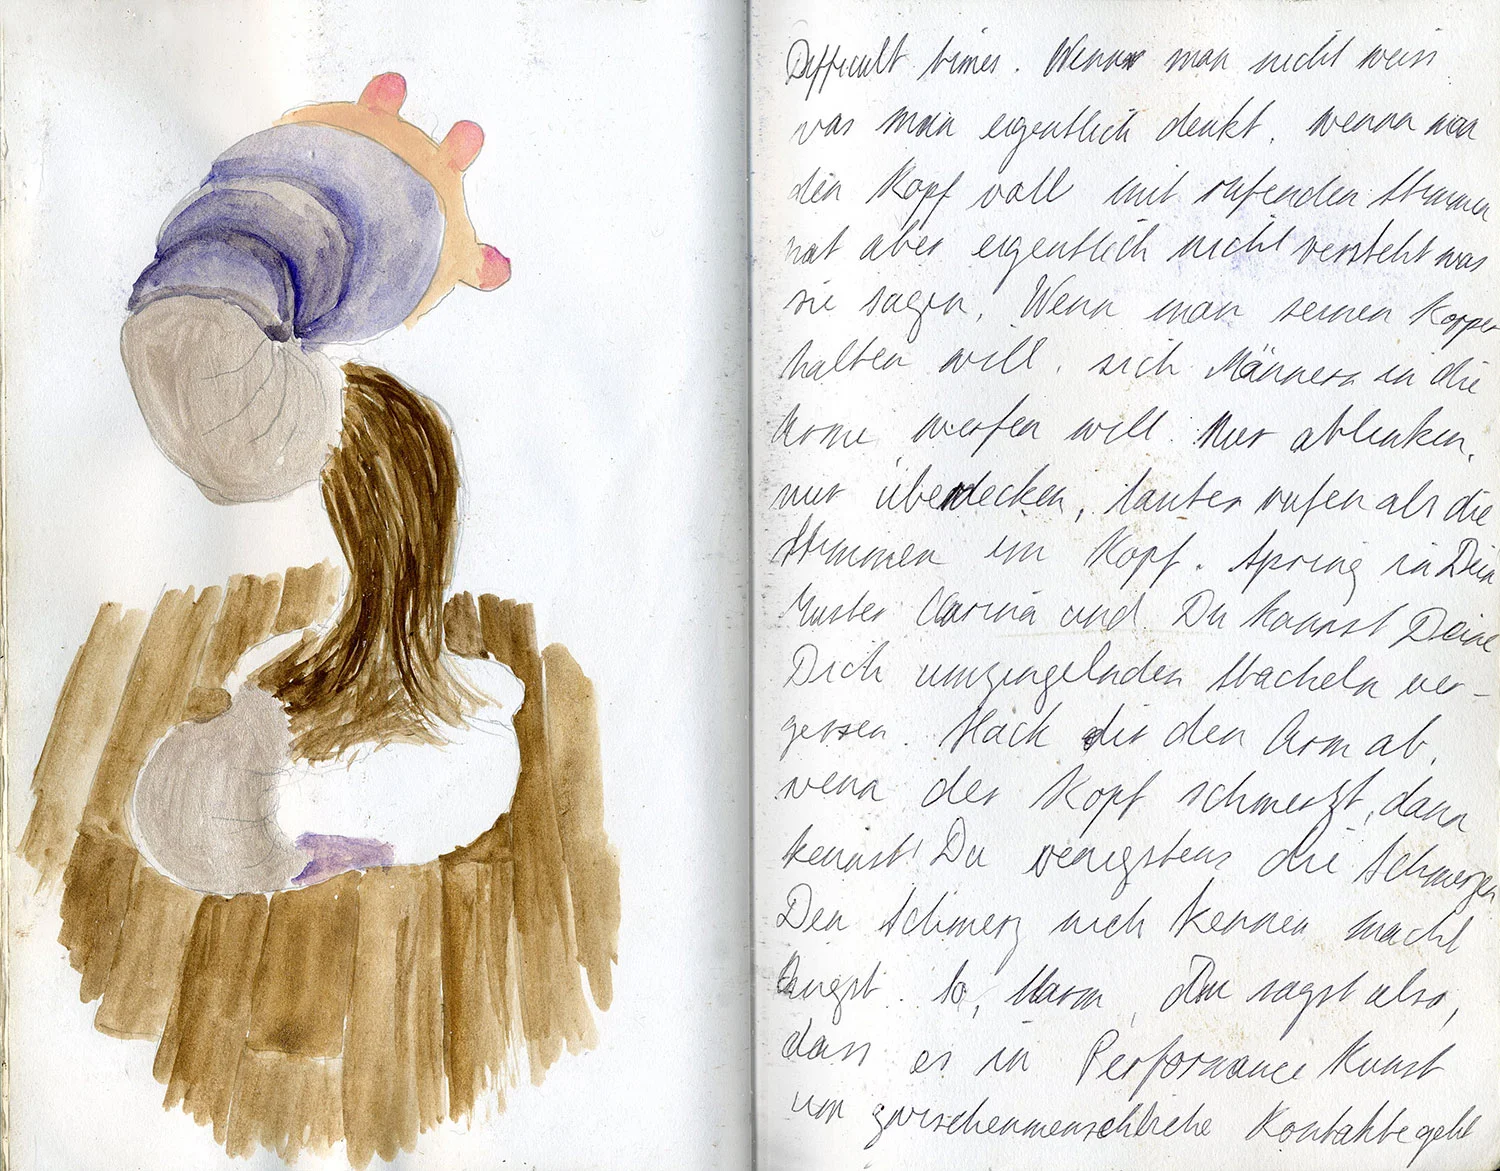 Difficult times. Wenn man nicht weiss
was man eigentlich denkt. wenn man
den Kopf voll mit rufenden Stimmen
hat aber eigentlich nicht versteht was
sie sagen. Wenn man seinen Körper
halten will. sich Männern in die
Arme werfen will. Nur ablenken.
nur überdecken, lauter rufen als die
Stimmen im Kopf. Spring in Dein
Muster Carina und Du kannst Deine
Dich umzingelnden Stacheln ver-
gessen. Hack dir den Arm ab,
wenn der Kopf schmerzt, dann
kennst Du wenigstens die Schmerzen
Den Schmerz nicht kennen macht
Angst. So, Du sagst also,
dass es in Performance Kunst
um zwischenmenschliche Kontakte geht